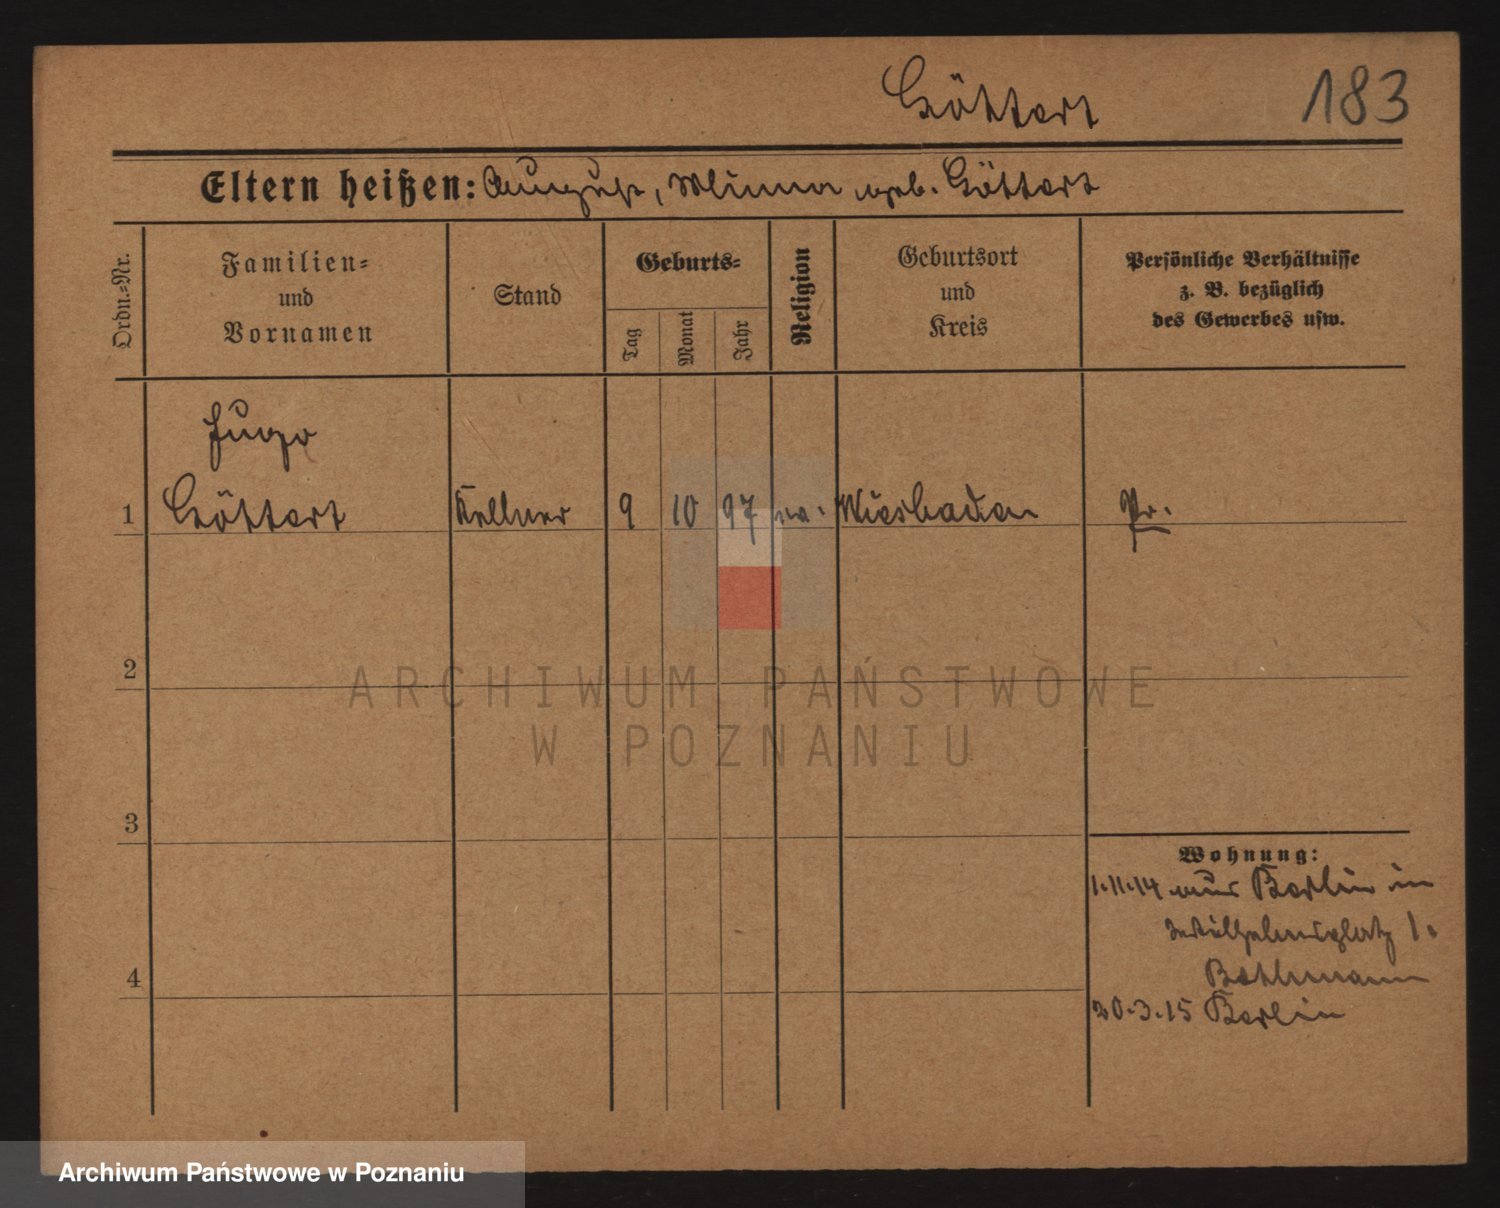 Göttert 183
Eltern heißen: August, Minna geb. Göttert
Ordn.-Nr.
Familien-
und
Vornamen
Stand
Geburts-
Tag
Monat
Jahr
Religion
Geburtsort
und
Kreis
Persönliche Verhältnisse
z. B. bezüglich
des Gewerbes usw.
Hugo
1 Göttert Kellner 9 10 97 ev. Wiesbaden Pr.
2
3
4
Wohnung:
1.11.14 aus Berlin in
Wilhelmsplatz 1.
Bethmann
20.3.15 Berlin
ARCHIWUM PAŃSTWOWE
W POZNANIU
Archiwum Państwowe w Poznaniu